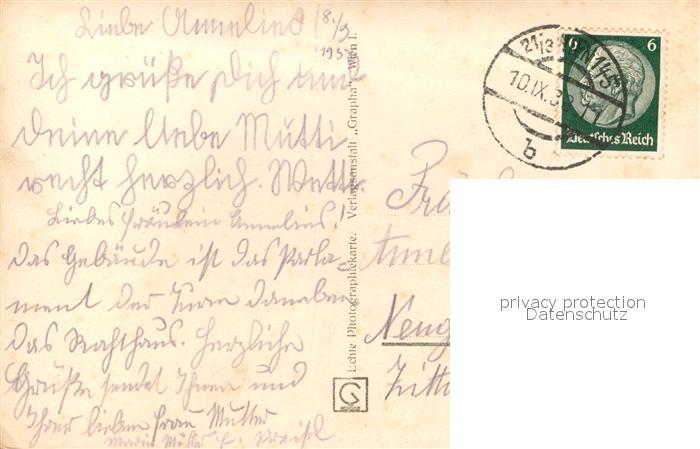 Liebe Annelies (8./9.
193
Ich grüße Dich und
deine liebe Mutti
recht herzlich.
Liebes Fräulein Annelies!
Das Gebäude ist das Parla-
ment der Turm daneben
das Rahthaus. Herzliche
Grüße sendet Ihnen und
Ihrer lieben Frau Mutter
Echte Photographiekarte. Verlagsanstalt „Grapha“, Wien I.
G
10.IX.38
b
6 6
Deutsches Reich
Frl
Anne
Neug
Zitt
privacy protection
Datenschutz